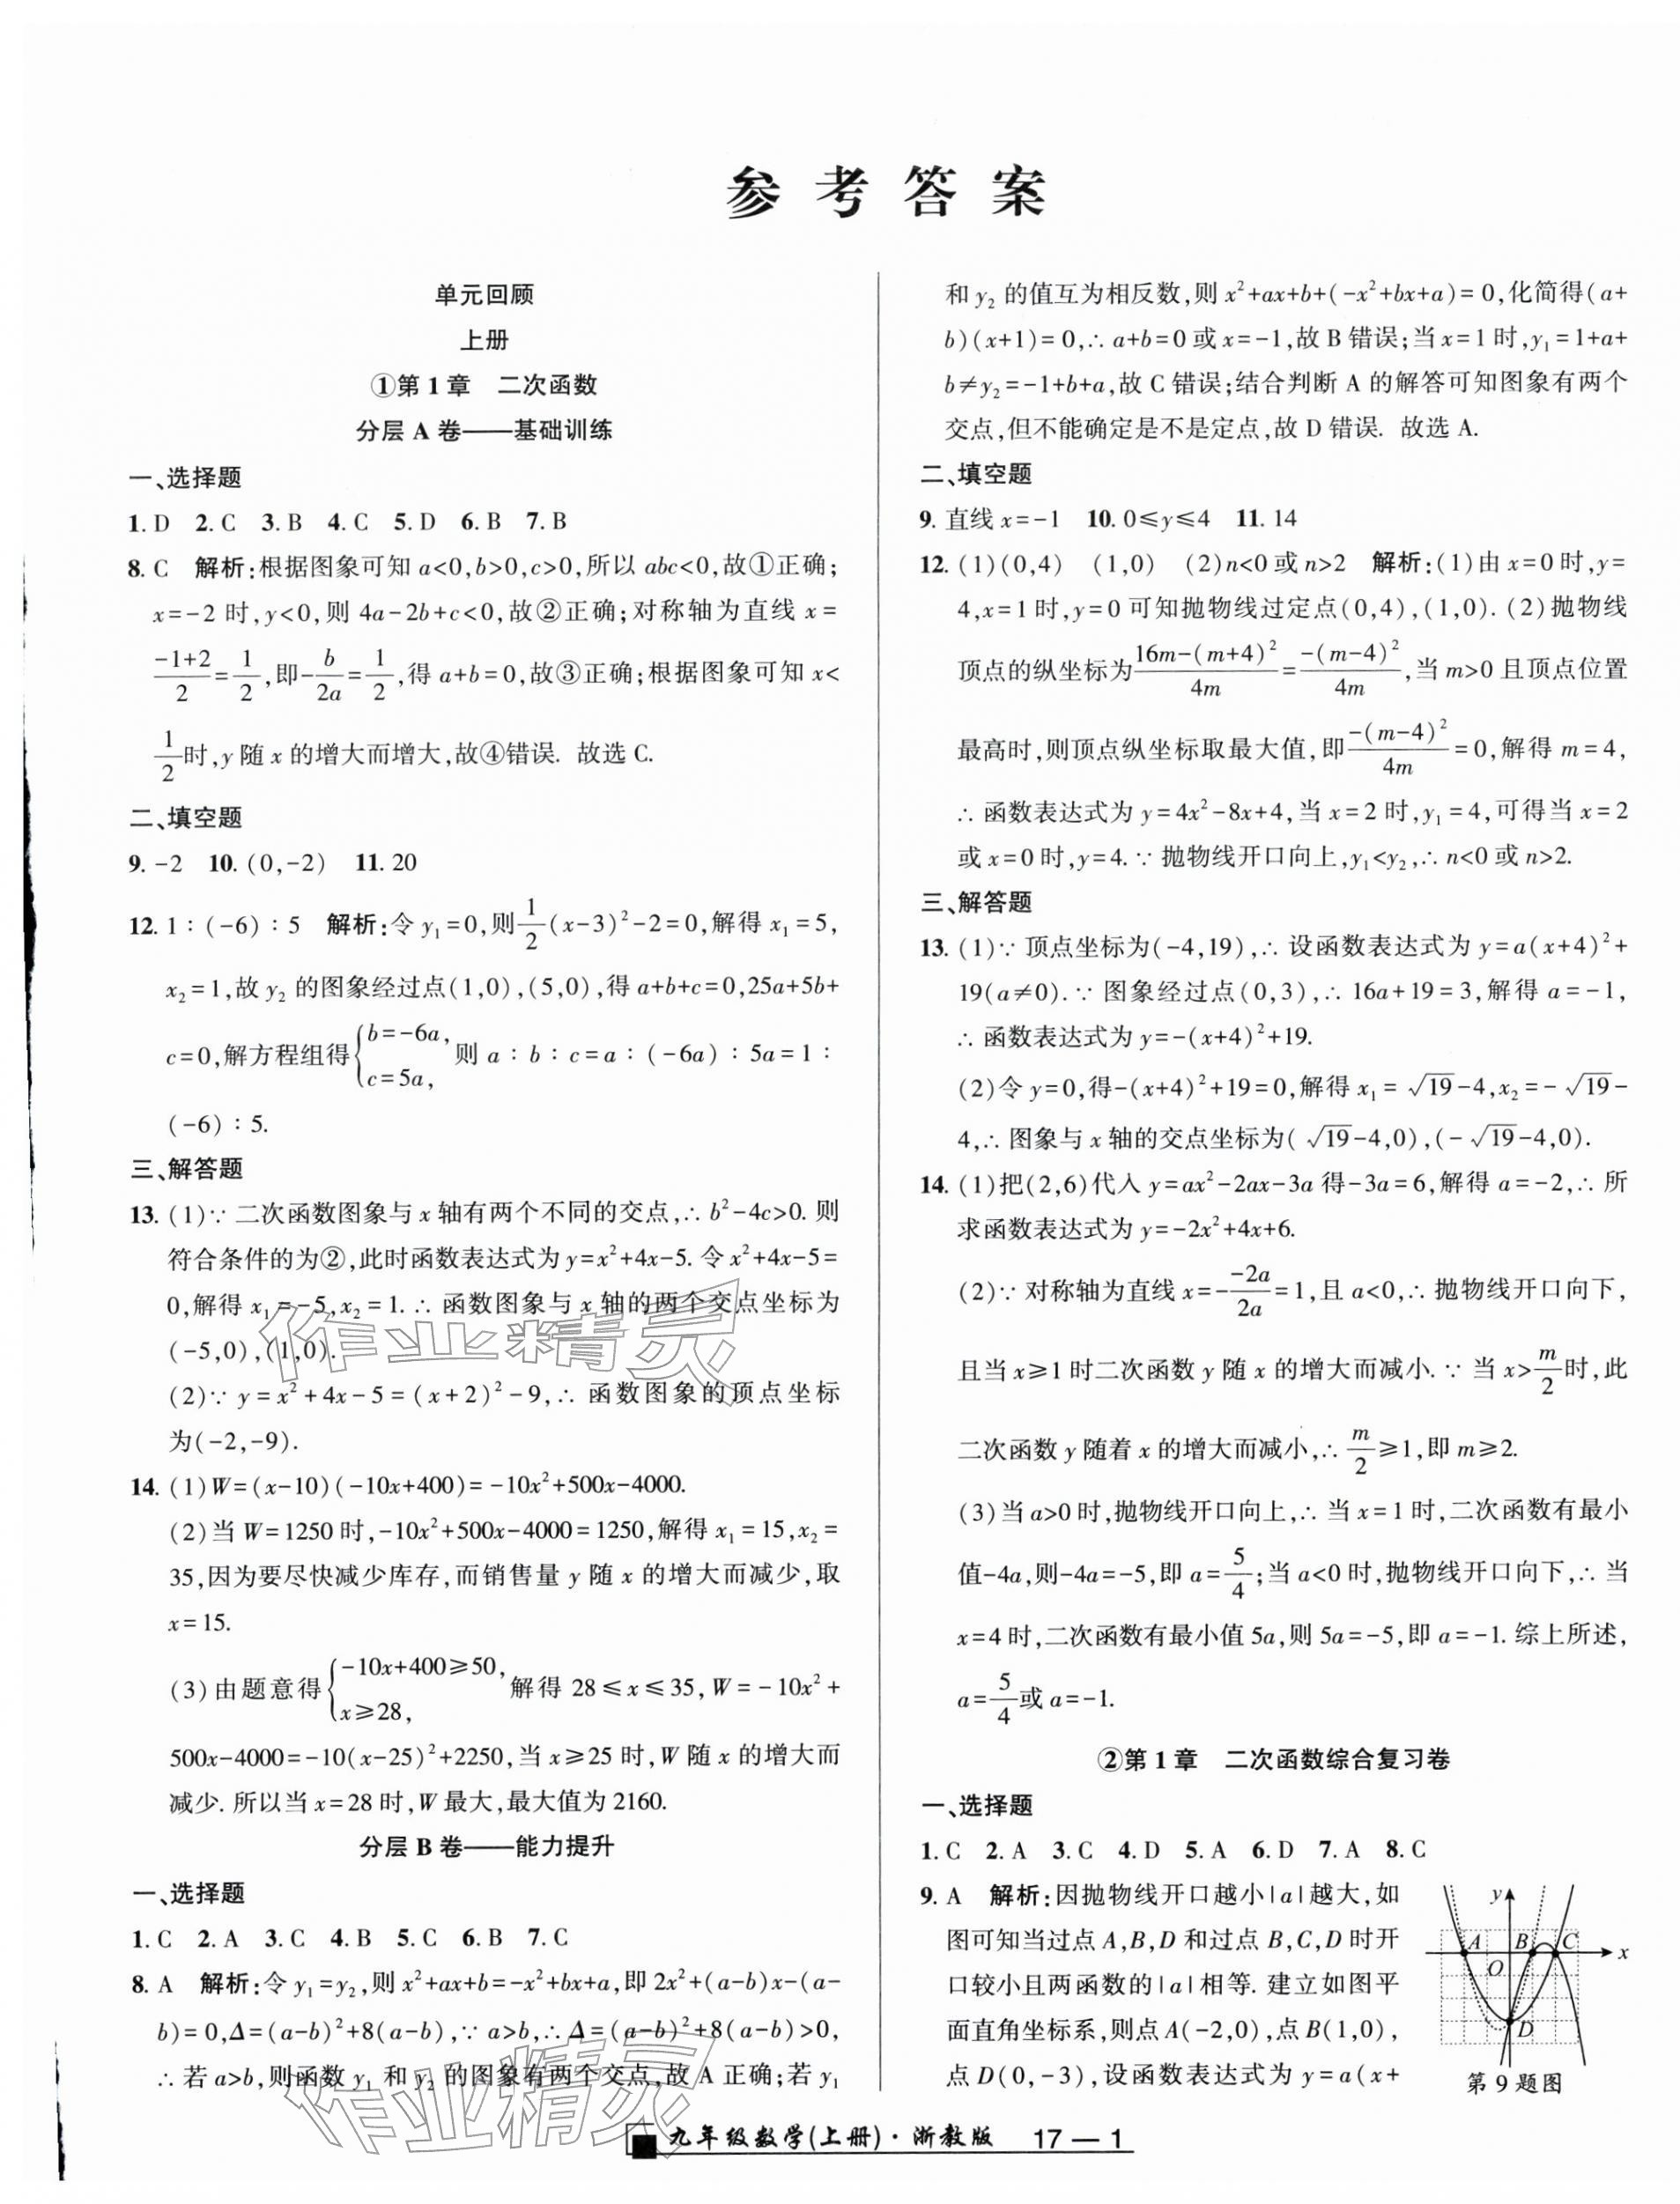 参考答案
单元回顾
上册
①第1章 二次函数
分层A卷——基础训练
一、选择题
1. D 2. C 3. B 4. C 5. D 6. B 7. B
8. C 解析:根据图象可知 a<0,b>0,c>0,所以 abc<0,故①正确;
x=-2 时,y<0,则 4a-2b+c<0,故②正确;对称轴为直线 x=
(-1+2)/2=1/2,即-b/(2a)=1/2,得 a+b=0,故③正确;根据图象可知 x<
1/2时,y 随 x 的增大而增大,故④错误. 故选 C.
二、填空题
9. -2 10. (0,-2) 11. 20
12. 1∶(-6)∶5 解析:令 y₁=0,则1/2(x-3)²-2=0,解得 x₁=5,
x₂=1,故 y₂ 的图象经过点(1,0),(5,0),得 a+b+c=0,25a+5b+
c=0,解方程组得{b=-6a, c=5a, 则 a∶b∶c=a∶(-6a)∶5a=1∶
(-6)∶5.
三、解答题
13. (1)∵ 二次函数图象与 x 轴有两个不同的交点,∴ b²-4c>0. 则
符合条件的为②,此时函数表达式为 y=x²+4x-5. 令 x²+4x-5=
0,解得 x₁=-5,x₂=1. ∴ 函数图象与 x 轴的两个交点坐标为
(-5,0),(1,0).
(2)∵ y=x²+4x-5=(x+2)²-9,∴ 函数图象的顶点坐标
为(-2,-9).
14. (1)W=(x-10)(-10x+400)=-10x²+500x-4000.
(2)当 W=1250 时,-10x²+500x-4000=1250,解得 x₁=15,x₂=
35,因为要尽快减少库存,而销售量 y 随 x 的增大而减少,取
x=15.
(3)由题意得{-10x+400≥50, x≥28, 解得 28≤x≤35,W=-10x²+
500x-4000=-10(x-25)²+2250,当 x≥25 时,W 随 x 的增大而
减少. 所以当 x=28 时,W 最大,最大值为 2160.
分层B卷——能力提升
一、选择题
1. C 2. A 3. C 4. B 5. C 6. B 7. C
8. A 解析:令 y₁=y₂,则 x²+ax+b=-x²+bx+a,即 2x²+(a-b)x-(a-
b)=0,Δ=(a-b)²+8(a-b),∵ a>b,∴ Δ=(a-b)²+8(a-b)>0,
∴ 若 a>b,则函数 y₁ 和 y₂ 的图象有两个交点,故 A 正确;若 y₁
和 y₂ 的值互为相反数,则 x²+ax+b+(-x²+bx+a)=0,化简得(a+
b)(x+1)=0,∴ a+b=0 或 x=-1,故 B 错误;当 x=1 时,y₁=1+a+
b≠y₂=-1+b+a,故 C 错误;结合判断 A 的解答可知图象有两个
交点,但不能确定是不是定点,故 D 错误. 故选 A.
二、填空题
9. 直线 x=-1 10. 0≤y≤4 11. 14
12. (1)(0,4) (1,0) (2)n<0或n>2 解析:(1)由 x=0 时,y=
4,x=1 时,y=0 可知抛物线过定点(0,4),(1,0). (2)抛物线
顶点的纵坐标为(16m-(m+4)²)/(4m)=(-(m-4)²)/(4m),当 m>0 且顶点位置
最高时,则顶点纵坐标取最大值,即(-(m-4)²)/(4m)=0,解得 m=4,
∴ 函数表达式为 y=4x²-8x+4,当 x=2 时,y₁=4,可得当 x=2
或 x=0 时,y=4. ∵ 抛物线开口向上,y₁<y₂,∴ n<0 或 n>2.
三、解答题
13. (1)∵ 顶点坐标为(-4,19),∴ 设函数表达式为 y=a(x+4)²+
19(a≠0). ∵ 图象经过点(0,3),∴ 16a+19=3,解得 a=-1,
∴ 函数表达式为 y=-(x+4)²+19.
(2)令 y=0,得-(x+4)²+19=0,解得 x₁=√19-4,x₂=-√19-
4,∴ 图象与 x 轴的交点坐标为(√19-4,0),(-√19-4,0).
14. (1)把(2,6)代入 y=ax²-2ax-3a 得-3a=6,解得 a=-2,∴ 所
求函数表达式为 y=-2x²+4x+6.
(2)∵ 对称轴为直线 x=-(-2a)/(2a)=1,且 a<0,∴ 抛物线开口向下,
且当 x≥1 时二次函数 y 随 x 的增大而减小. ∵ 当 x>m/2时,此
二次函数 y 随着 x 的增大而减小,∴ m/2≥1,即 m≥2.
(3)当 a>0 时,抛物线开口向上,∴ 当 x=1 时,二次函数有最小
值-4a,则-4a=-5,即 a=5/4;当 a<0 时,抛物线开口向下,∴ 当
x=4 时,二次函数有最小值 5a,则 5a=-5,即 a=-1. 综上所述,
a=5/4或 a=-1.
②第1章 二次函数综合复习卷
一、选择题
1. C 2. A 3. C 4. D 5. A 6. D 7. A 8. C
9. A 解析:因抛物线开口越小|a|越大,如
图可知当过点 A,B,D 和过点 B,C,D 时开
口较小且两函数的|a|相等. 建立如图平
面直角坐标系,则点 A(-2,0),点 B(1,0),
点 D(0,-3),设函数表达式为 y=a(x+
y
A B C
O x
D
第9题图
九年级数学(上册)·浙教版 17—1
作业精灵
作业精灵